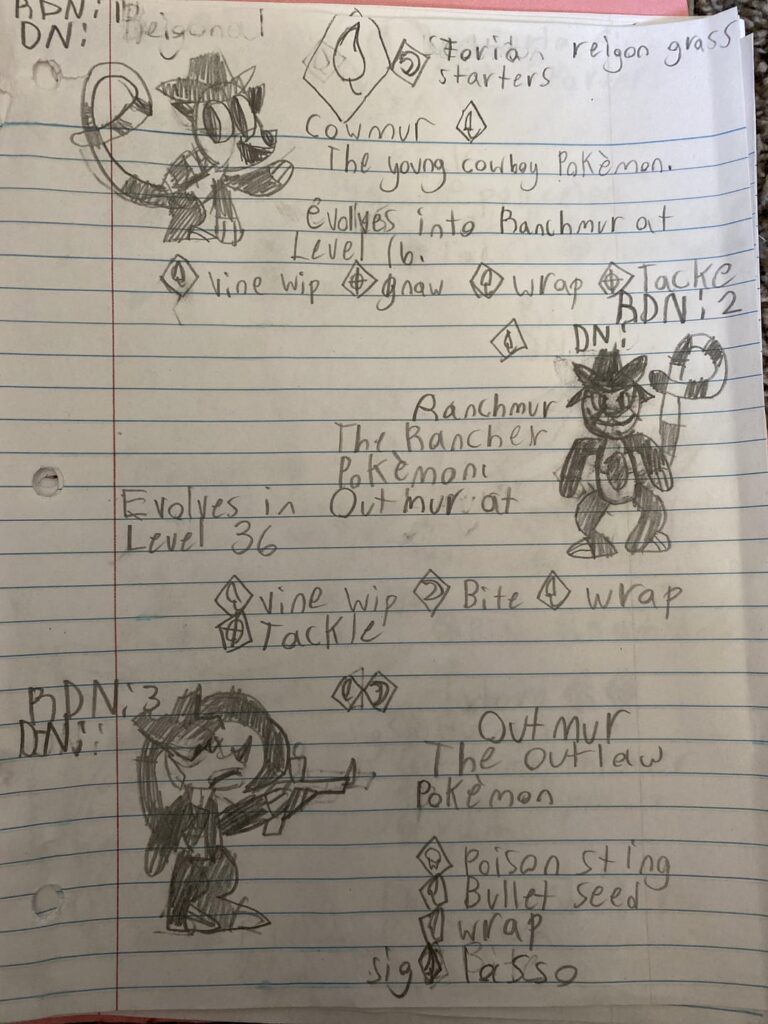 RDN: 1
DN: Reigonal
Foria reigon grass
starters
Cowmur
The young cowboy Pokèmon.
evolves into Ranchmur at
Level 16.
Vine wip gnaw wrap Tacke
RDN: 2
DN:
Ranchmur
The Rancher
Pokèmon:
Evolves in Outmur at
Level 36
Vine wip Bite wrap
Tackle
RDN: 3
DN::
Outmur
The outlaw
Pokèmon
Poison sting
Bullet seed
wrap
sig Lasso